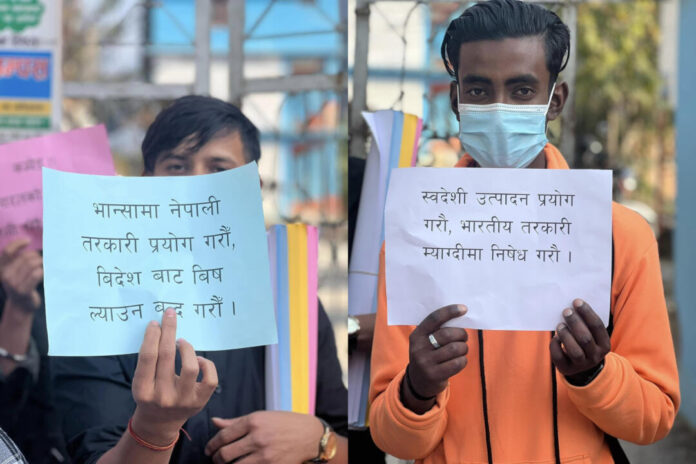 भान्सामा नेपाली
तरकारी प्रयोग गरौँ,
विदेश बाट विष
ल्याउन बन्द गरौँ ।
स्वदेशी उत्पादन प्रयोग
गरौँ, भारतीय तरकारी
म्याग्दीमा निषेध गरौ ।